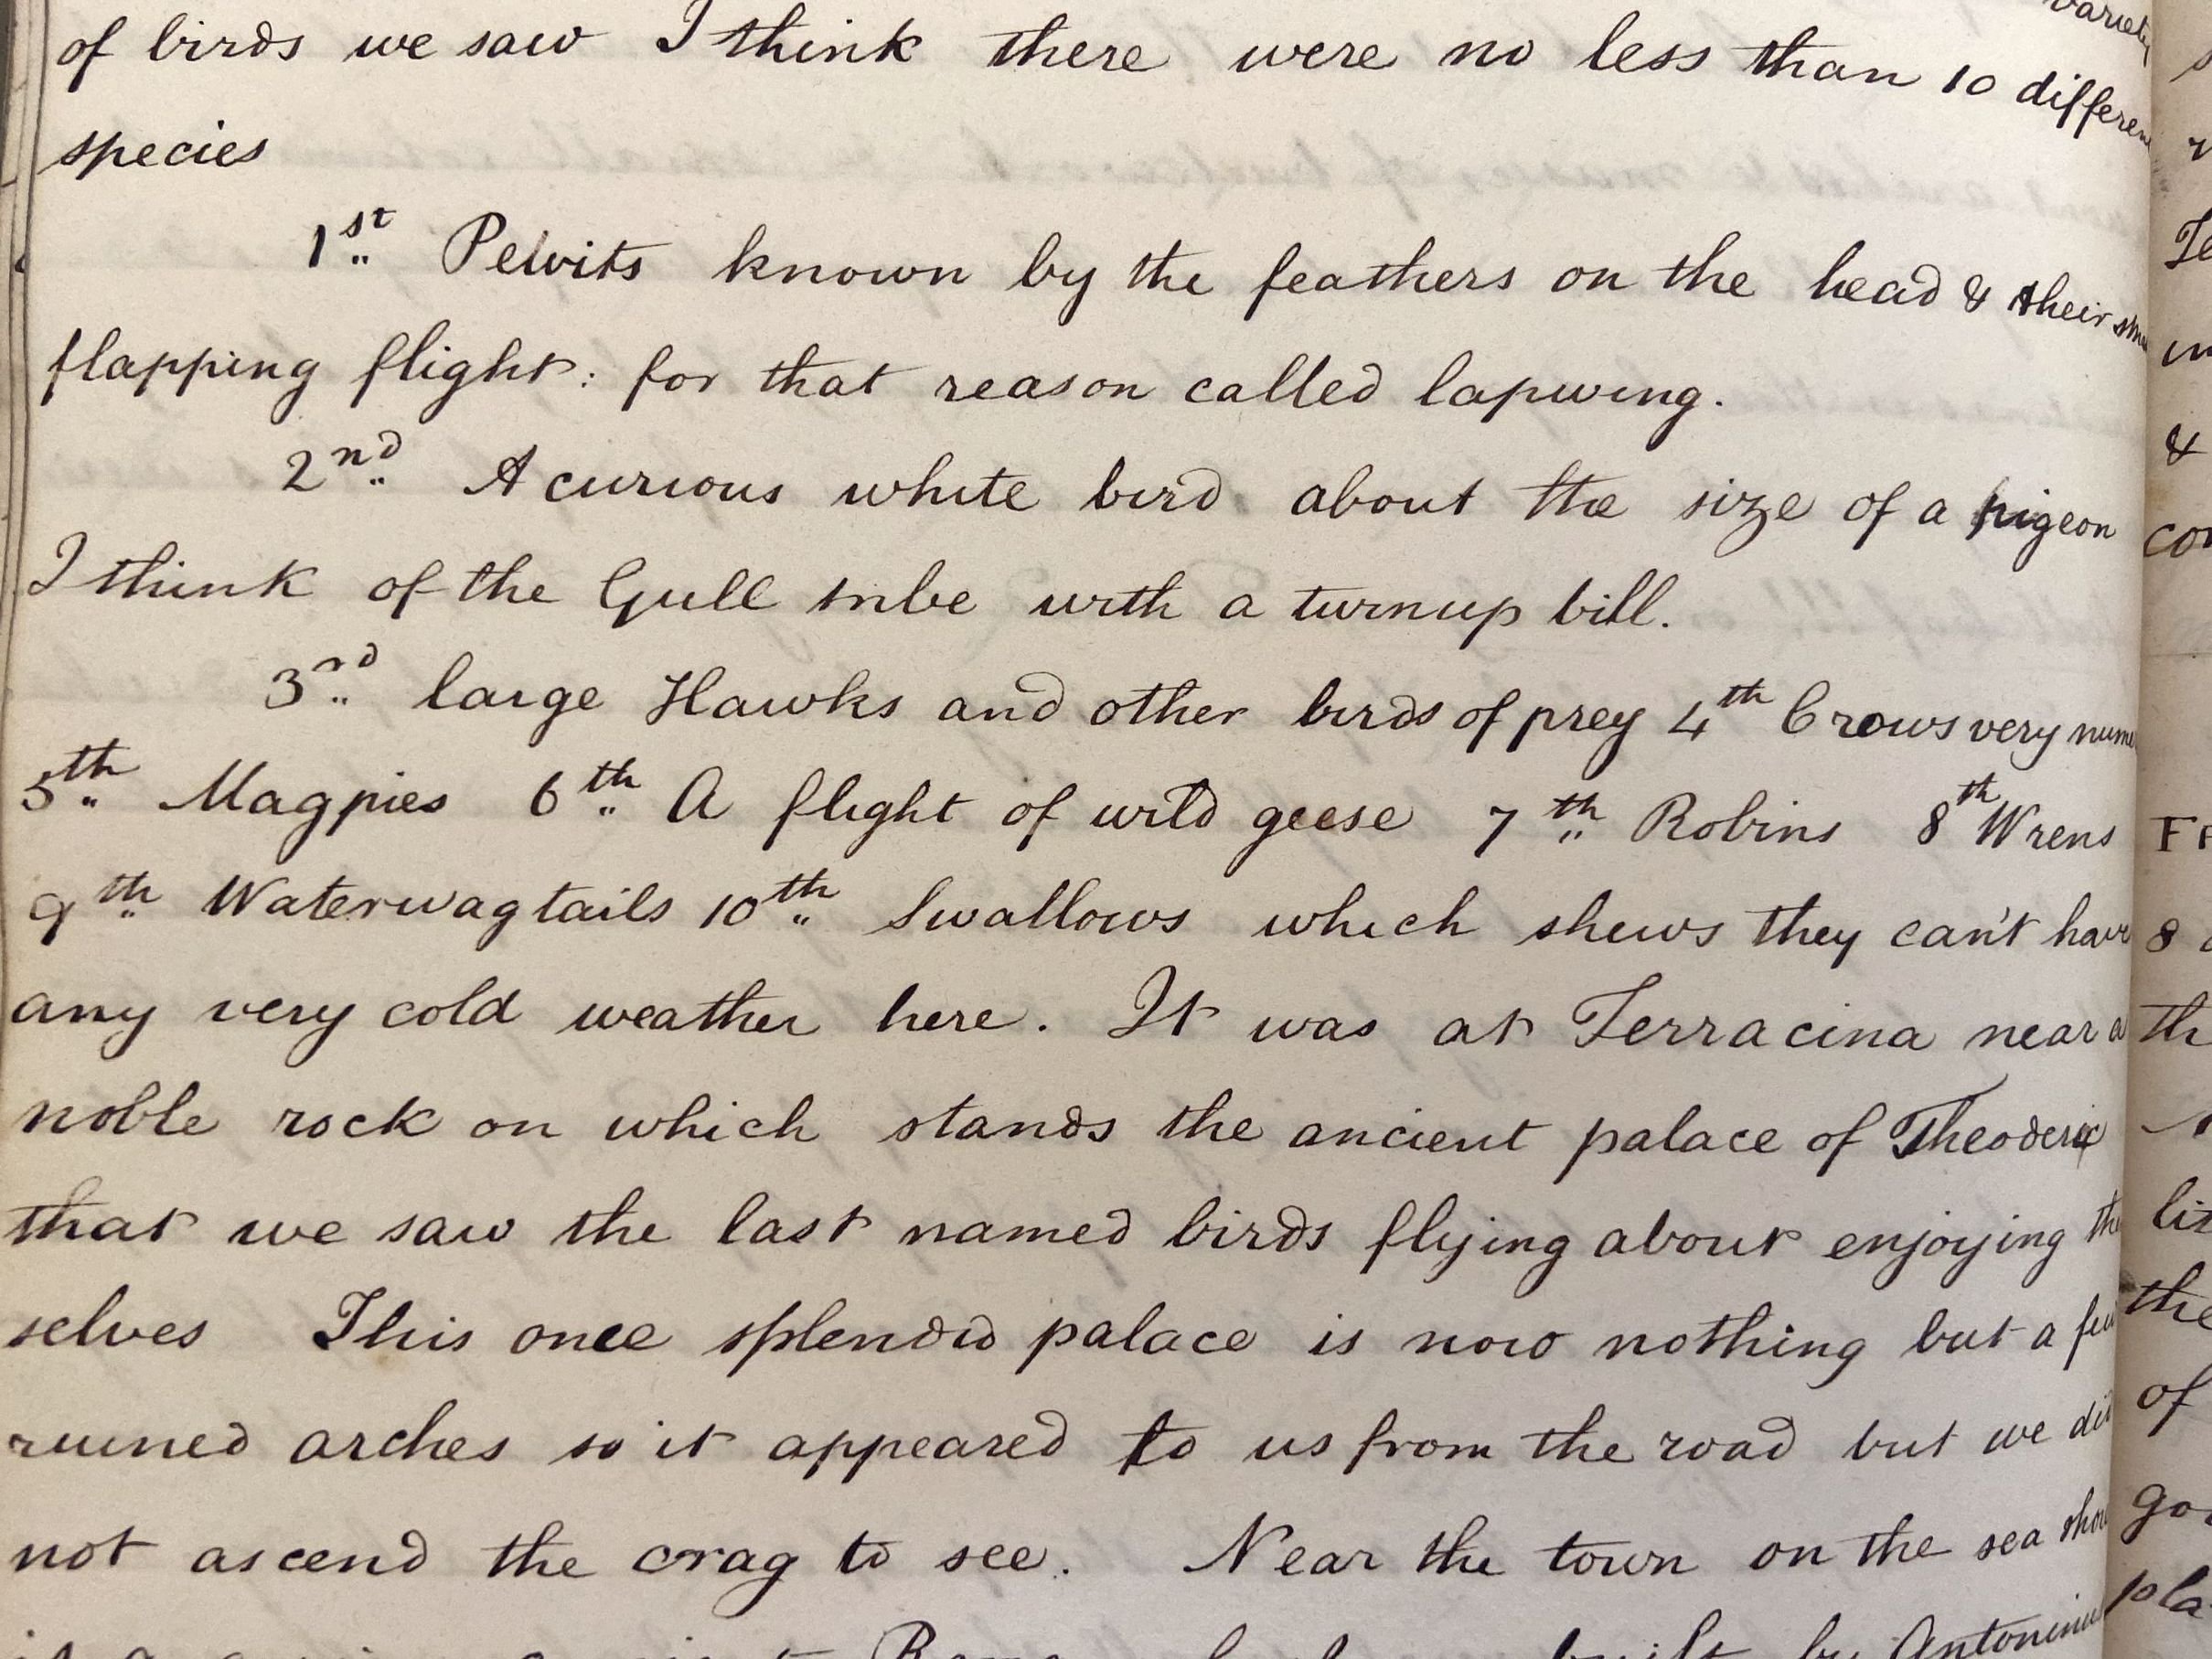 variety
of birds we saw I think there were no less than 10 differen
species
1st Pewits known by the feathers on the head & their
flapping flight: for that reason called lapwing.
2nd A curious white bird about the size of a pigeon
I think of the Gull tribe with a turnup bill.
3rd large Hawks and other birds of prey 4th Crows very nume
5th Magpies 6th A flight of wild geese 7th Robins 8th Wrens
9th Waterwagtails 10th Swallows which shews they can't have
any very cold weather here. It was at Terracina near a
noble rock on which stands the ancient palace of Theoderic
that we saw the last named birds flying about enjoying the
selves This once splendid palace is now nothing but a few
ruined arches so it appeared to us from the road but we did
not ascend the crag to see. Near the town on the sea shor
built by Antoninus